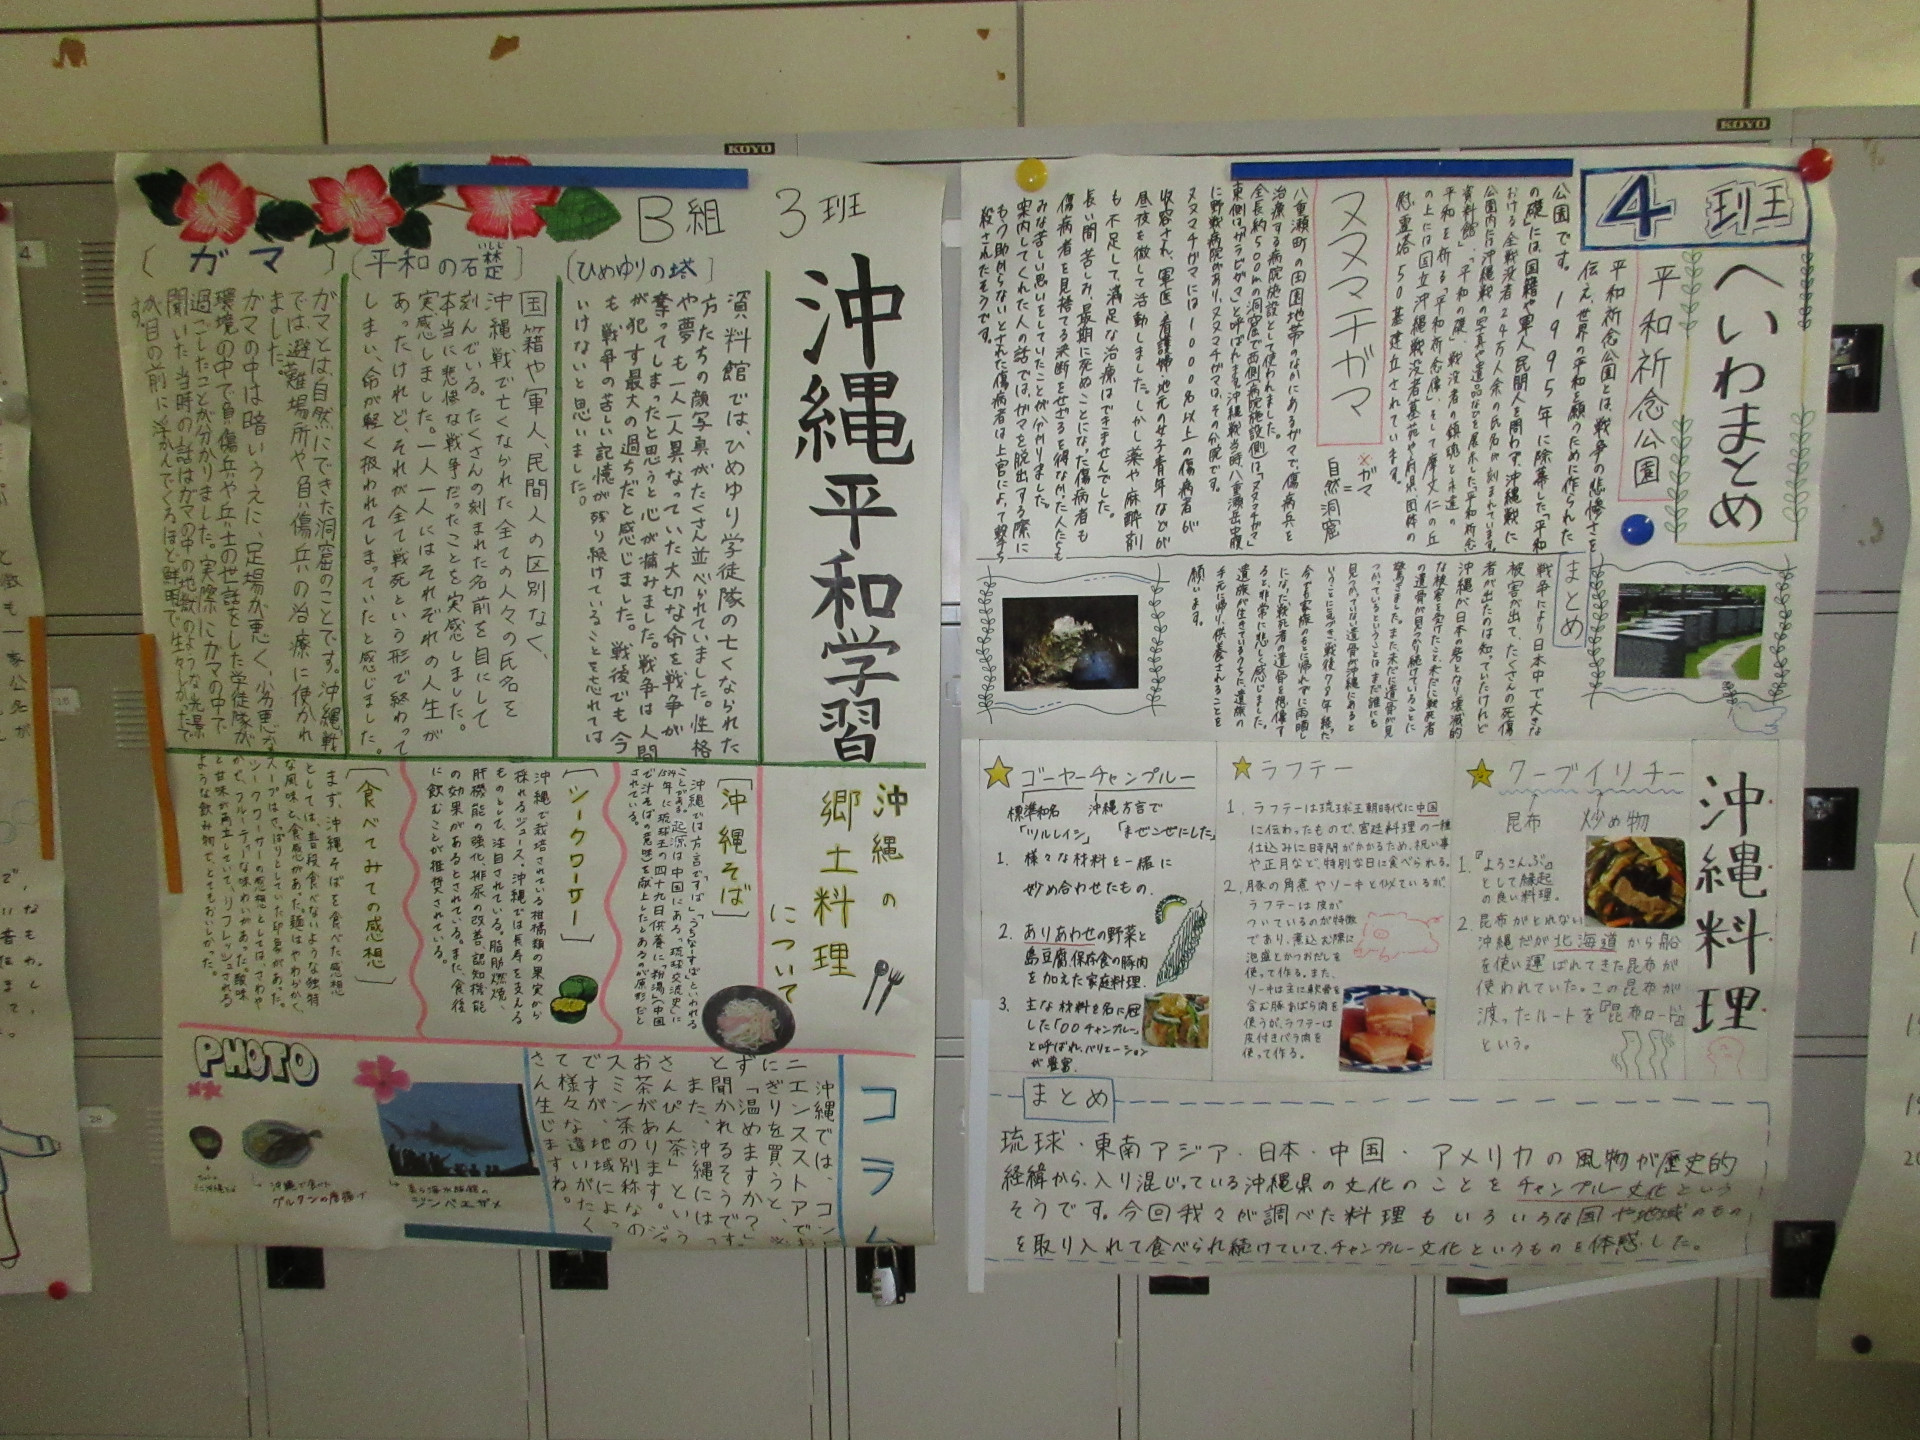 KOYO
KOYO
B組 3班
沖縄平和学習
(ひめゆりの塔)
資料館では、ひめゆり学徒隊の亡くなられた
方たちの顔写真がたくさん並べられていました。性格
や夢も一人一人異なっていた大切な命を戦争が
奪ってしまったと思うと心が痛みました。戦争は人間
が犯す最大の過ちだと感じました。戦後でも今
も、戦争の苦しい記憶が残り続けていることを忘れては
いけないと思いました。
(平和の石楚)
いしじ
国籍や軍人、民間人の区別なく、
沖縄戦で亡くなられた全ての人々の氏名を
刻んでいる。たくさんの刻まれた名前を目にして
本当に悲惨な戦争だったことを実感しました。
実感しました。一人一人にはそれぞれの人生が
あったけれど、それが全て戦死という形で終わって
しまい、命が軽く扱われてしまっていたと感じました。
(ガマ)
ガマとは自然にできた洞窟のことです。沖縄戦
では避難場所や負傷兵の治療に使われ
ました。
ガマの中は暗いうえに、足場が悪く、劣悪な
環境の中で負傷兵や兵士の世話をした学徒隊が
過ごしたことが分かりました。実際にガマの中で
聞いた当時の話はガマの中の地獄のような光景
が目の前に浮かんでくるほど鮮明で生々しかったで
す。
沖縄の
郷土料理
について
[沖縄そば]
沖縄では方言で「すば」「うちなーすば」といわれる
ことがある。起源は中国にある。「琉球交流史」に
で汁そばの意味)を献上したとあるのが原形だと
されている。
[シークワーサー]
沖縄で栽培されている柑橘類の果実から
採れるジュース。沖縄では長寿を支える
ものとして、注目されている。脂肪燃焼、
肝機能の強化、排尿の改善、認知機能
の効果があるとされている。また、食後
に飲むことが推奨されている。
[食べてみての感想]
まず、沖縄そばを食べた感想
としては、普段食べないような独特
な風味と食感があった。麺はやわらかく、
スープはさっぱりとしていた印象があった。
シークワーサーの感想としては、さわや
かで、フルーティーな味わいがあった。酸味
と甘味が両立していて、リフレッシュされる
ような飲み物で、とてもおいしかった。
PHOTO
沖縄で食べた
グルクンの唐揚げ
美ら海水族館の
ジンベエザメ
コラム
沖縄では、コンビ
ニエンスストアでお
にぎりを買うと、
「温めますか?」
と聞かれるそうです。
また、沖縄には
さんぴん茶という
お茶があります。ジャ
スミン茶の別称なの
ですが、地域によっ
て様々な違いがたく
さん生じますね。
4班
へいわまとめ
平和祈念公園
平和祈念公園とは、戦争の悲惨さを
伝え、世界の平和を願うために作られた
公園です。1995年に除幕した「平和
の礎」には、国籍や軍人、民間人を問わず、沖縄戦に
おける全戦没者24万人余の氏名が刻まれています。
公園内には沖縄戦の写真や遺品などを展示した「平和祈念
資料館」、「平和の礎」、戦没者の鎮魂と永遠の
平和を祈る「平和祈念像」、そして摩文仁の丘
の上には国立沖縄戦没者墓苑や府県、団体の
慰霊塔50基建立されています。
ヌヌマチガマ
※ガマ
=
自然洞窟
八重瀬町の田園地帯のなかにあるガマで、傷病兵を
治療する病院施設として使われました。
全長約500mの洞窟で西側(病院施設側)は「ヌヌマチガマ」
東側は「ガラビガマ」と呼ばれます。沖縄戦当時、八重瀬岳中腹
に野戦病院があり、ヌヌマチガマは、その分院です。
ヌヌマチガマには1000名以上の傷病者が
収容され、軍医、看護婦、地元の女子青年などが
昼夜を徹して活動しました。しかし薬や麻酔剤
も不足して、満足な治療はできませんでした。
長い間苦しみ、最期に死ぬことになった傷病者も
傷病者を見捨てる決断をせざるを得なかった人たちも
みな苦しい思いをしていたことが分かりました。
案内してくれた人の話では、ガマを脱出する際に
もう助からないとされた傷病者は上官によって撃ち
殺されたそうです。
まとめ
戦争により日本中で大きな
被害が出て、たくさんの死傷
者が出たのは知っていたけれど
沖縄が日本の砦となり壊滅的
な被害を受けたこと、未だに戦死者
の遺骨が見つかり続けていることに
驚きました。また未だに遺骨が見
つかっているということは、まだ誰にも
見つかっていない遺骨が沖縄にあると
いうことに気づき、戦後78年経った
今でも家族のもとに帰れずに雨晒し
になった戦死者の遺骨を想像す
ると非常に悲しく感じました。
遺族が生きているうちに、遺族の
手元に帰り、供養されることを
願います。
沖縄料理
クーブイリチー
昆布 炒め物
1.『よろこんぶ』
として縁起
の良い料理。
2. 昆布がとれない
沖縄だが北海道から船
を使い運ばれてきた昆布が
使われていた。この昆布が
渡ったルートを『昆布ロード』
という。
ラフテー
1. ラフテーは琉球王朝時代に中国
に伝わったもので、宮廷料理の一種
仕込みに時間がかかるため、祝い事
や正月など、特別な日に食べられる。
2. 豚の角煮やソーキと似ているが、
ラフテーは皮が
ついているのが特徴
であり、煮込む際に
泡盛とかつおだしを
使って作る。また、
ソーキは主に軟骨を
含む豚あばら肉を
使うが、ラフテーは
皮付きバラ肉を
使って作る。
ゴーヤーチャンプルー
標準和名 沖縄方言で
「ツルレイシ」 「まぜこぜにした」
1. 様々な材料を一緒に
炒め合わせたもの。
2. ありあわせの野菜と
島豆腐、保存食の豚肉
を加えた家庭料理。
3. 主な材料を名に冠
した「〇〇チャンプルー」
と呼ばれ、バリエーション
が豊富。
まとめ
琉球・東南アジア・日本・中国・アメリカの風物が歴史的
経緯から、入り混じっている沖縄県の文化のことをチャンプルー文化という
そうです。今回我々が調べた料理もいろいろな国や地域のもの
を取り入れて食べられ続けていて、チャンプルー文化というものを体感した。